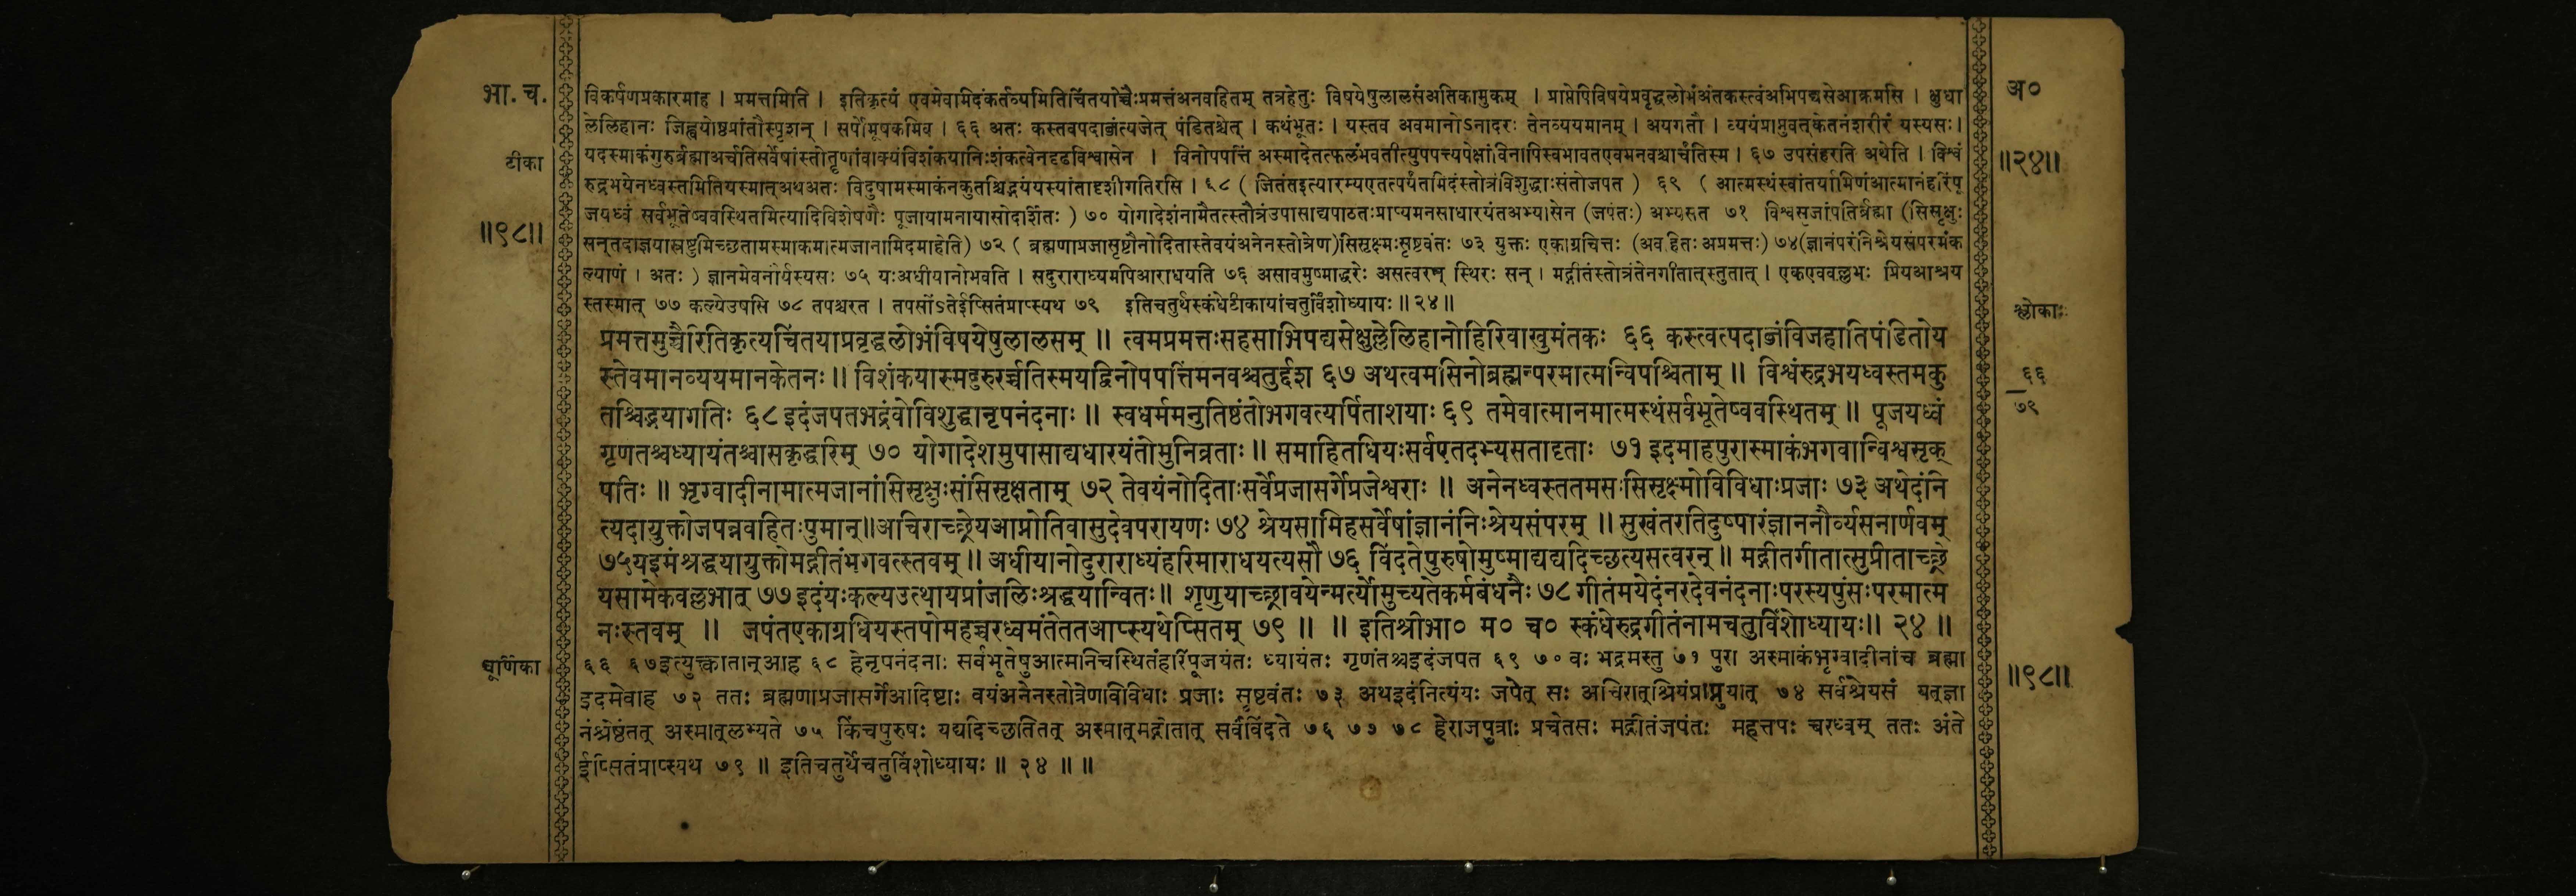 भा. च.
टीका
॥९८॥
विकर्षणप्रकारमाह । प्रमत्तमिति । इतिकृत्यं एवमेवामिदंकर्तव्यमितिचिंतयोच्चैःप्रमत्तंअनवहितम् तत्रहेतुः विषयेषुलालसंअतिकामुकम् । प्राप्तेपिविषयेप्रवृद्धलोभंअंतकस्त्वंअभिपद्यसेआक्रमसि । क्षुधा
लेलिहानः जिह्वयोष्ठप्रांतौस्पृशन् । सर्पोमूषकमिव । ६६ अतः कस्तवपदाब्जंत्यजेत् पंडितश्चेत् । कथंभूतः । यस्तव अवमानोऽनादरः तेनव्ययमानम् । अयगतौ । व्ययंप्राप्नुवत्केतनंशरीरं यस्यसः।
यदस्माकंगुरुर्ब्रह्माअर्चातिसर्वेषांस्तोतॄणांवाक्यंविशंकयानिःशंकत्वेनदृढविश्वासेन । विनोपपत्तिं अस्मादेतत्फलंभवतीत्युपपत्त्यपेक्षांविनापिस्वभावतएवमनवश्चार्चंतिस्म । ६७ उपसंहरति अथेति । विश्वं
रुद्रभयेनध्वस्तमितियस्मात्अथअतः विदुषामस्माकंनकुतश्चिद्भयंयस्यांतादृशीगतिरसि । ६८ ( जितंतइत्यारम्यएतत्पर्यंतमिदंस्तोत्रंविशुद्धाःसंतोजपत ) ६९ ( आत्मस्थंस्वांतर्यामिणंआत्मानंहरिंपू
जयध्वं सर्वभूतेष्ववस्थितमित्यादिविशेषणैः पूजायामनायासोदर्शितः ) ७० योगादेशंनामैतत्स्तोत्रंउपासाद्यपाठतःप्राप्यमनसाधारयंतअभ्यासेन (जपंतः) अभ्यसत ७१ विश्वसृजांपतिर्ब्रह्मा (सिसृक्षुः
सन्तदाज्ञयास्रष्टुमिच्छतामस्माकमात्मजानामिदमाहेति) ७२ ( ब्रह्मणाप्रजासृष्टौनोदितास्तेवयंअनेनस्तोत्रेण)सिसृक्ष्मःसृष्टवंतः ७३ युक्तः एकाग्रचित्तः (अवहितः अप्रमत्तः) ७४(ज्ञानंपरंनिश्रेयसंपरमंक
ल्याणं । अतः ) ज्ञानमेवनौर्यस्यसः ७५ यःअधीयानोभवति । सदुराराध्यमपिआराधयति ७६ असावमुष्माद्धरेः असत्वरन् स्थिरः सन् । मद्गीतंस्तोत्रंतेनगीतात्स्तुतात् । एकएववल्लभः प्रियआश्रय
स्तस्मात् ७७ कल्येउषसि ७८ तपश्चरत । तपसोंऽतेईप्सितंप्राप्स्यथ ७९ इतिचतुर्थस्कंधेटीकायांचतुर्विंशोध्यायः ॥ २४ ॥
प्रमत्तमुच्चैरितिकृत्यचिंतयाप्रवृद्धलोभंविषयेषुलालसम् ॥ त्वमप्रमत्तःसहसाभिपद्यसेक्षुल्लेलिहानोहिरिवाखुमंतकः ६६ कस्त्वत्पदाब्जंविजहातिपंडितोय
स्तेवमानव्ययमानकेतनः॥ विशंकयास्मद्गुरुरर्च्चतिस्मयद्विनोपपत्तिंमनवश्चतुर्द्दश ६७ अथत्वमसिनोब्रह्मन्परमात्मन्विपश्चिताम् ॥ विश्वंरुद्रभयध्वस्तमकु
तश्चिद्भयागतिः ६८ इदंजपतभद्रंवोविशुद्धानृपनंदनाः ॥ स्वधर्ममनुतिष्ठंतोभगवत्यर्पिताशयाः ६९ तमेवात्मानमात्मस्थंसर्वभूतेष्ववस्थितम् ॥ पूजयध्वं
गृणतश्चध्यायंतश्चासकृद्धरिम् ७० योगादेशमुपासाद्यधारयंतोमुनिव्रताः ॥ समाहितधियःसर्वएतदभ्यसतादृताः ७१ इदमाहपुरास्माकंभगवान्विश्वसृक्
पतिः ॥ भृग्वादीनामात्मजानांसिसृक्षुःसंसिसृक्षताम् ७२ तेवयंनोदिताःसर्वेप्रजासर्गेप्रजेश्वराः ॥ अनेनध्वस्ततमसःसिसृक्ष्मोविविधाःप्रजाः ७३ अथेदंनि
त्यदायुक्तोजपन्नवहितःपुमान्॥अचिराच्छ्रेयआप्नोतिवासुदेवपरायणः ७४ श्रेयसामिहसर्वेषांज्ञानंनिःश्रेयसंपरम् ॥ सुखंतरतिदुष्पारंज्ञाननौर्व्यसनार्णवम्
७५यइमंश्रद्धयायुक्तोमद्गीतंभगवत्स्तवम् ॥ अधीयानोदुराराध्यंहरिमाराधयत्यसौ ७६ विंदतेपुरुषोमुष्माद्यद्यदिच्छत्यसत्वरन् ॥ मद्गीतगीतात्सुप्रीताच्छ्रे
यसामेकवल्लभात् ७७ इदंयःकल्यउत्थायप्रांजलिःश्रद्धयान्वितः॥ शृणुयाच्छ्रावयेन्मर्त्योमुच्यतेकर्मबंधनैः ७८ गीतंमयेदंनरदेवनंदनाःपरस्यपुंसःपरमात्म
नःस्तवम् ॥ जपंतएकाग्रधियस्तपोमहच्चरध्वमंतेततआप्स्यथेप्सितम् ७९ ॥ ॥ इतिश्रीभा० म० च० स्कंधेरुद्रगीतंनामचतुर्विंशोध्यायः॥ २४ ॥
चूर्णिका
६६ ६७इत्युक्त्वातान्आह ६८ हेनृपनंदनाः सर्वभूतेषुआत्मानिचस्थितंहरिंपूजयंतः ध्यायंतः गृणंतश्चइदंजपत ६९ ७० वः भद्रमस्तु ७१ पुरा अस्माकंभृग्वादीनांच ब्रह्मा
इदमेवाह ७२ ततः ब्रह्मणाप्रजासर्गेआदिष्टाः वयंअनेनस्तोत्रेणविविधाः प्रजाः सृष्टवंतः ७३ अथइदंनित्यंयः जपेत् सः अचिरात्श्रियंप्राप्नुयात् ७४ सर्वश्रेयसं यत्ज्ञा
नंश्रेष्ठंतत् अस्मात्लभ्यते ७५ किंचपुरुषः यद्यदिच्छतितत् अस्मात्मद्गीतात् सर्वंविंदते ७६ ७७ ७८ हेराजपुत्राः प्रचेतसः मद्गीतंजपंतः महत्तपः चरध्वम् ततः अंते
ईप्सितंप्राप्स्यथ ७९ ॥ इतिचतुर्थेचतुर्विंशोध्यायः ॥ २४ ॥ ॥
अ०
॥२४॥
श्लोकाः
६६
७९
॥९८॥